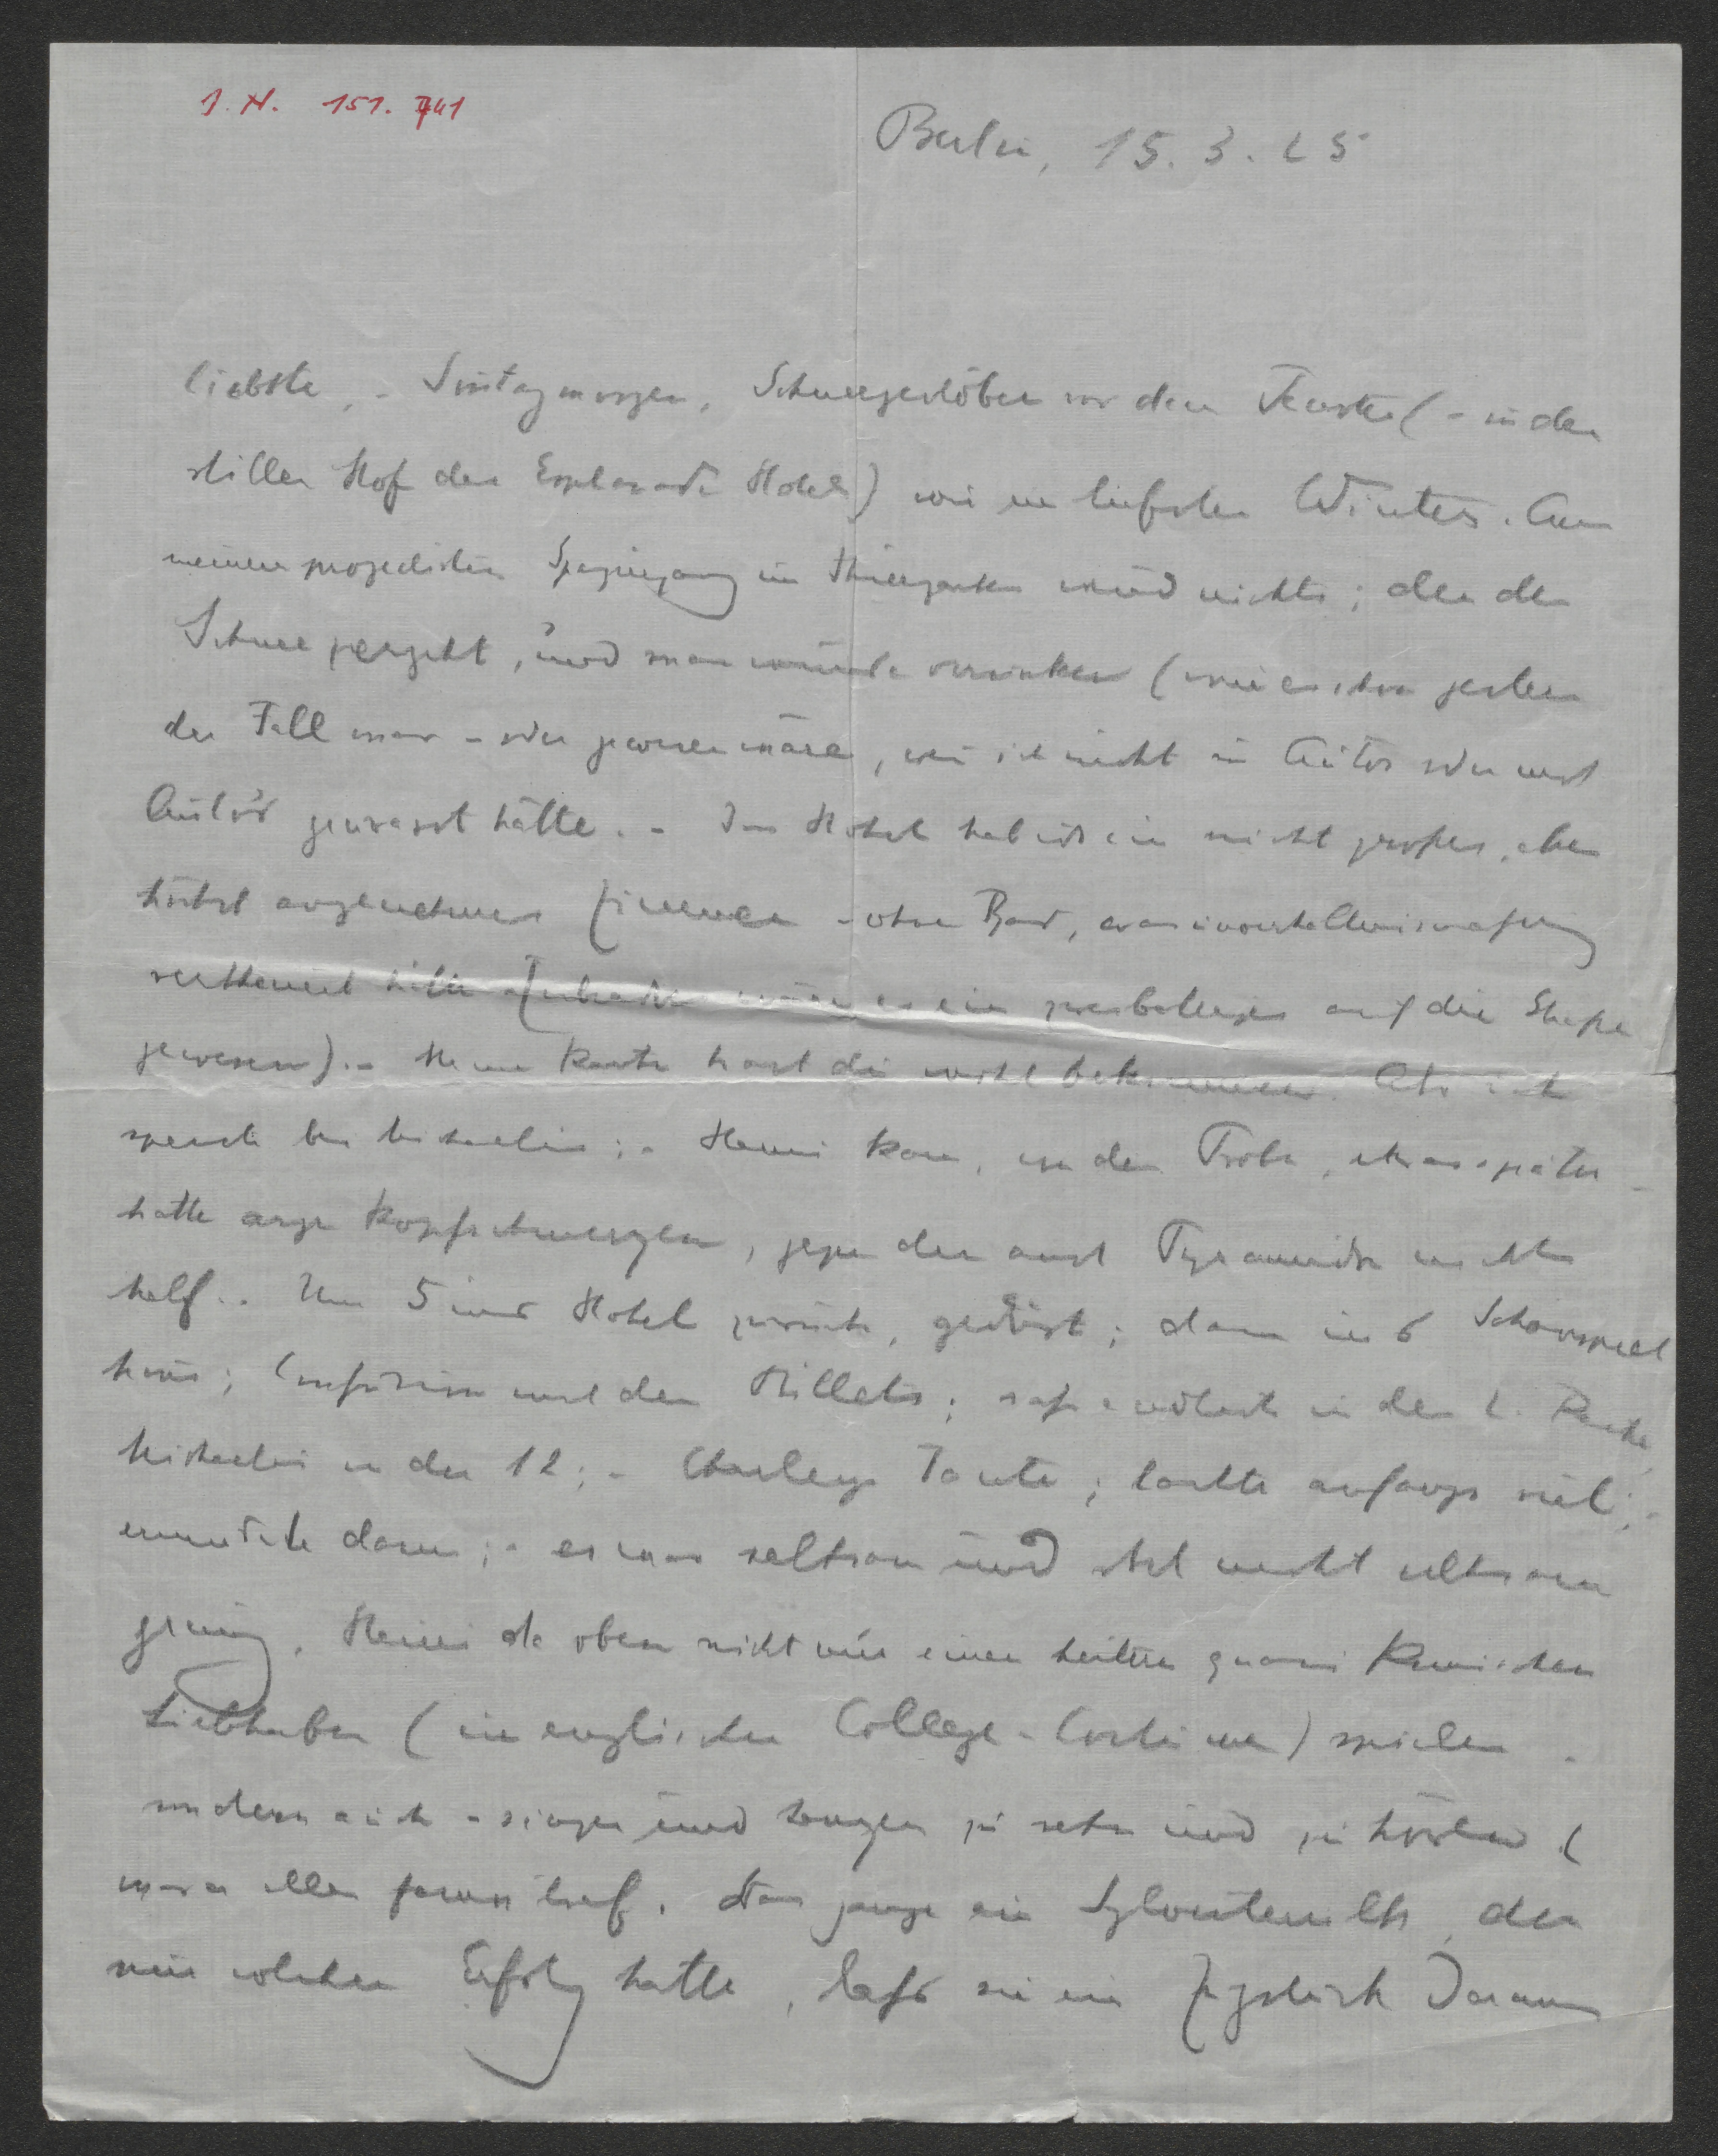 I. N. 151.741
Berlin, 15. 3. 25
liebste, - Sontag morgen, Schneegestöber vor dem Fenster (- in den
stillen Hof des Esplanade Hotels) wie im tiefsten Winter. Aus
meinem projectirten Spaziergang im Thiergarten wird nichts; den der
Schnee zergeht, und man würde versinken (wie es schon gestern
der Fall war - oder gewesen wäre, wen ich nicht im Auto
Auto gehabt hätte. - Im Hotel hab ich ein nicht großes, aber
höchst angenehmes Zimmer - ohne Bad, was
vertheuert hätte wäre es ein auf die Straße
gewesen). - Meine Karte hast du wohl bekommen. Also ich
speiste bei Michaelis; - Heini kam, von der Probe, etwas später -
hatte arge Kopfschmerzen, gegen die auch Pyramidon nichts
half. - Um 5 ins Hotel zurück, ; dann ins Schauspiel
haus; Confusion mit den Billets; saß endlich in der 2. Reihe,
Michaelis in der 12; - Charleys Tante; lachte anfangs viel; -
ermüdete dann; - es war seltsam und doch nicht seltsam
genug, Heini da oben nicht nur einen heitern quasi komischen
Liebhaber (in englischem College-Costüme) spielen -
sondern auch - singen und tanzen zu sehn und zu hören (
wozu er allen . Das ganze ein Sylvesterulk, der
nur solchen Erfolg hatte, daß sie ein Zugstück daraus